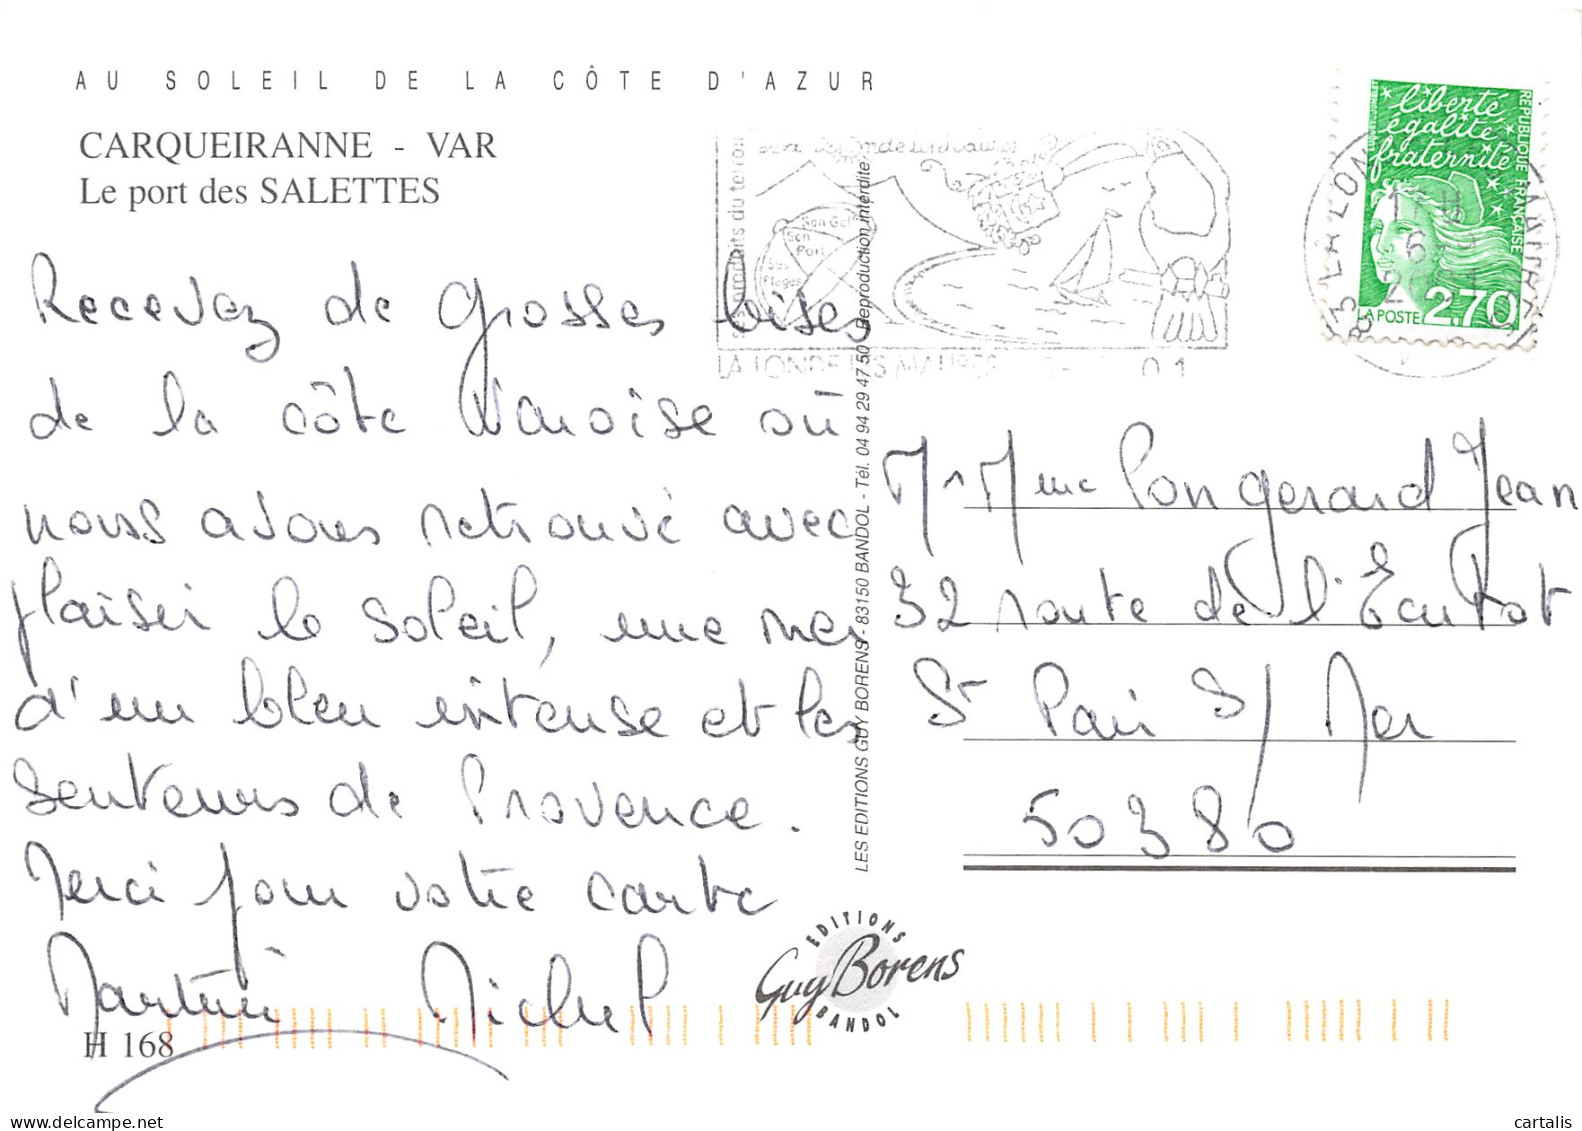 AU SOLEIL DE LA CÔTE D'AZUR
CARQUEIRANNE - VAR
Le port des SALETTES
Recevez de grosses bises
de la côte Varoise où
nous avons retrouvé avec
plaisir le soleil, une mer
d'un bleu intense et les
senteurs de Provence.
Merci pour votre carte
Martine Michel
H 168
ses produits du terroir
Son Golf
Son
Port
Ses
Plages
LA LONDE LES MAURES
LES EDITIONS GUY BORENS - 83150 BANDOL - Tél. 04 94 29 47 50 - Reproduction interdite
liberté
égalité
fraternité
REPUBLIQUE FRANÇAISE
LA POSTE 2,70
83 LA LONDE
Mr Mme Pongerard Jean
32 route de l'Ecutot
St Pair S/ Mer
50380
EDITIONS
Guy Borens
BANDOL
cartalis